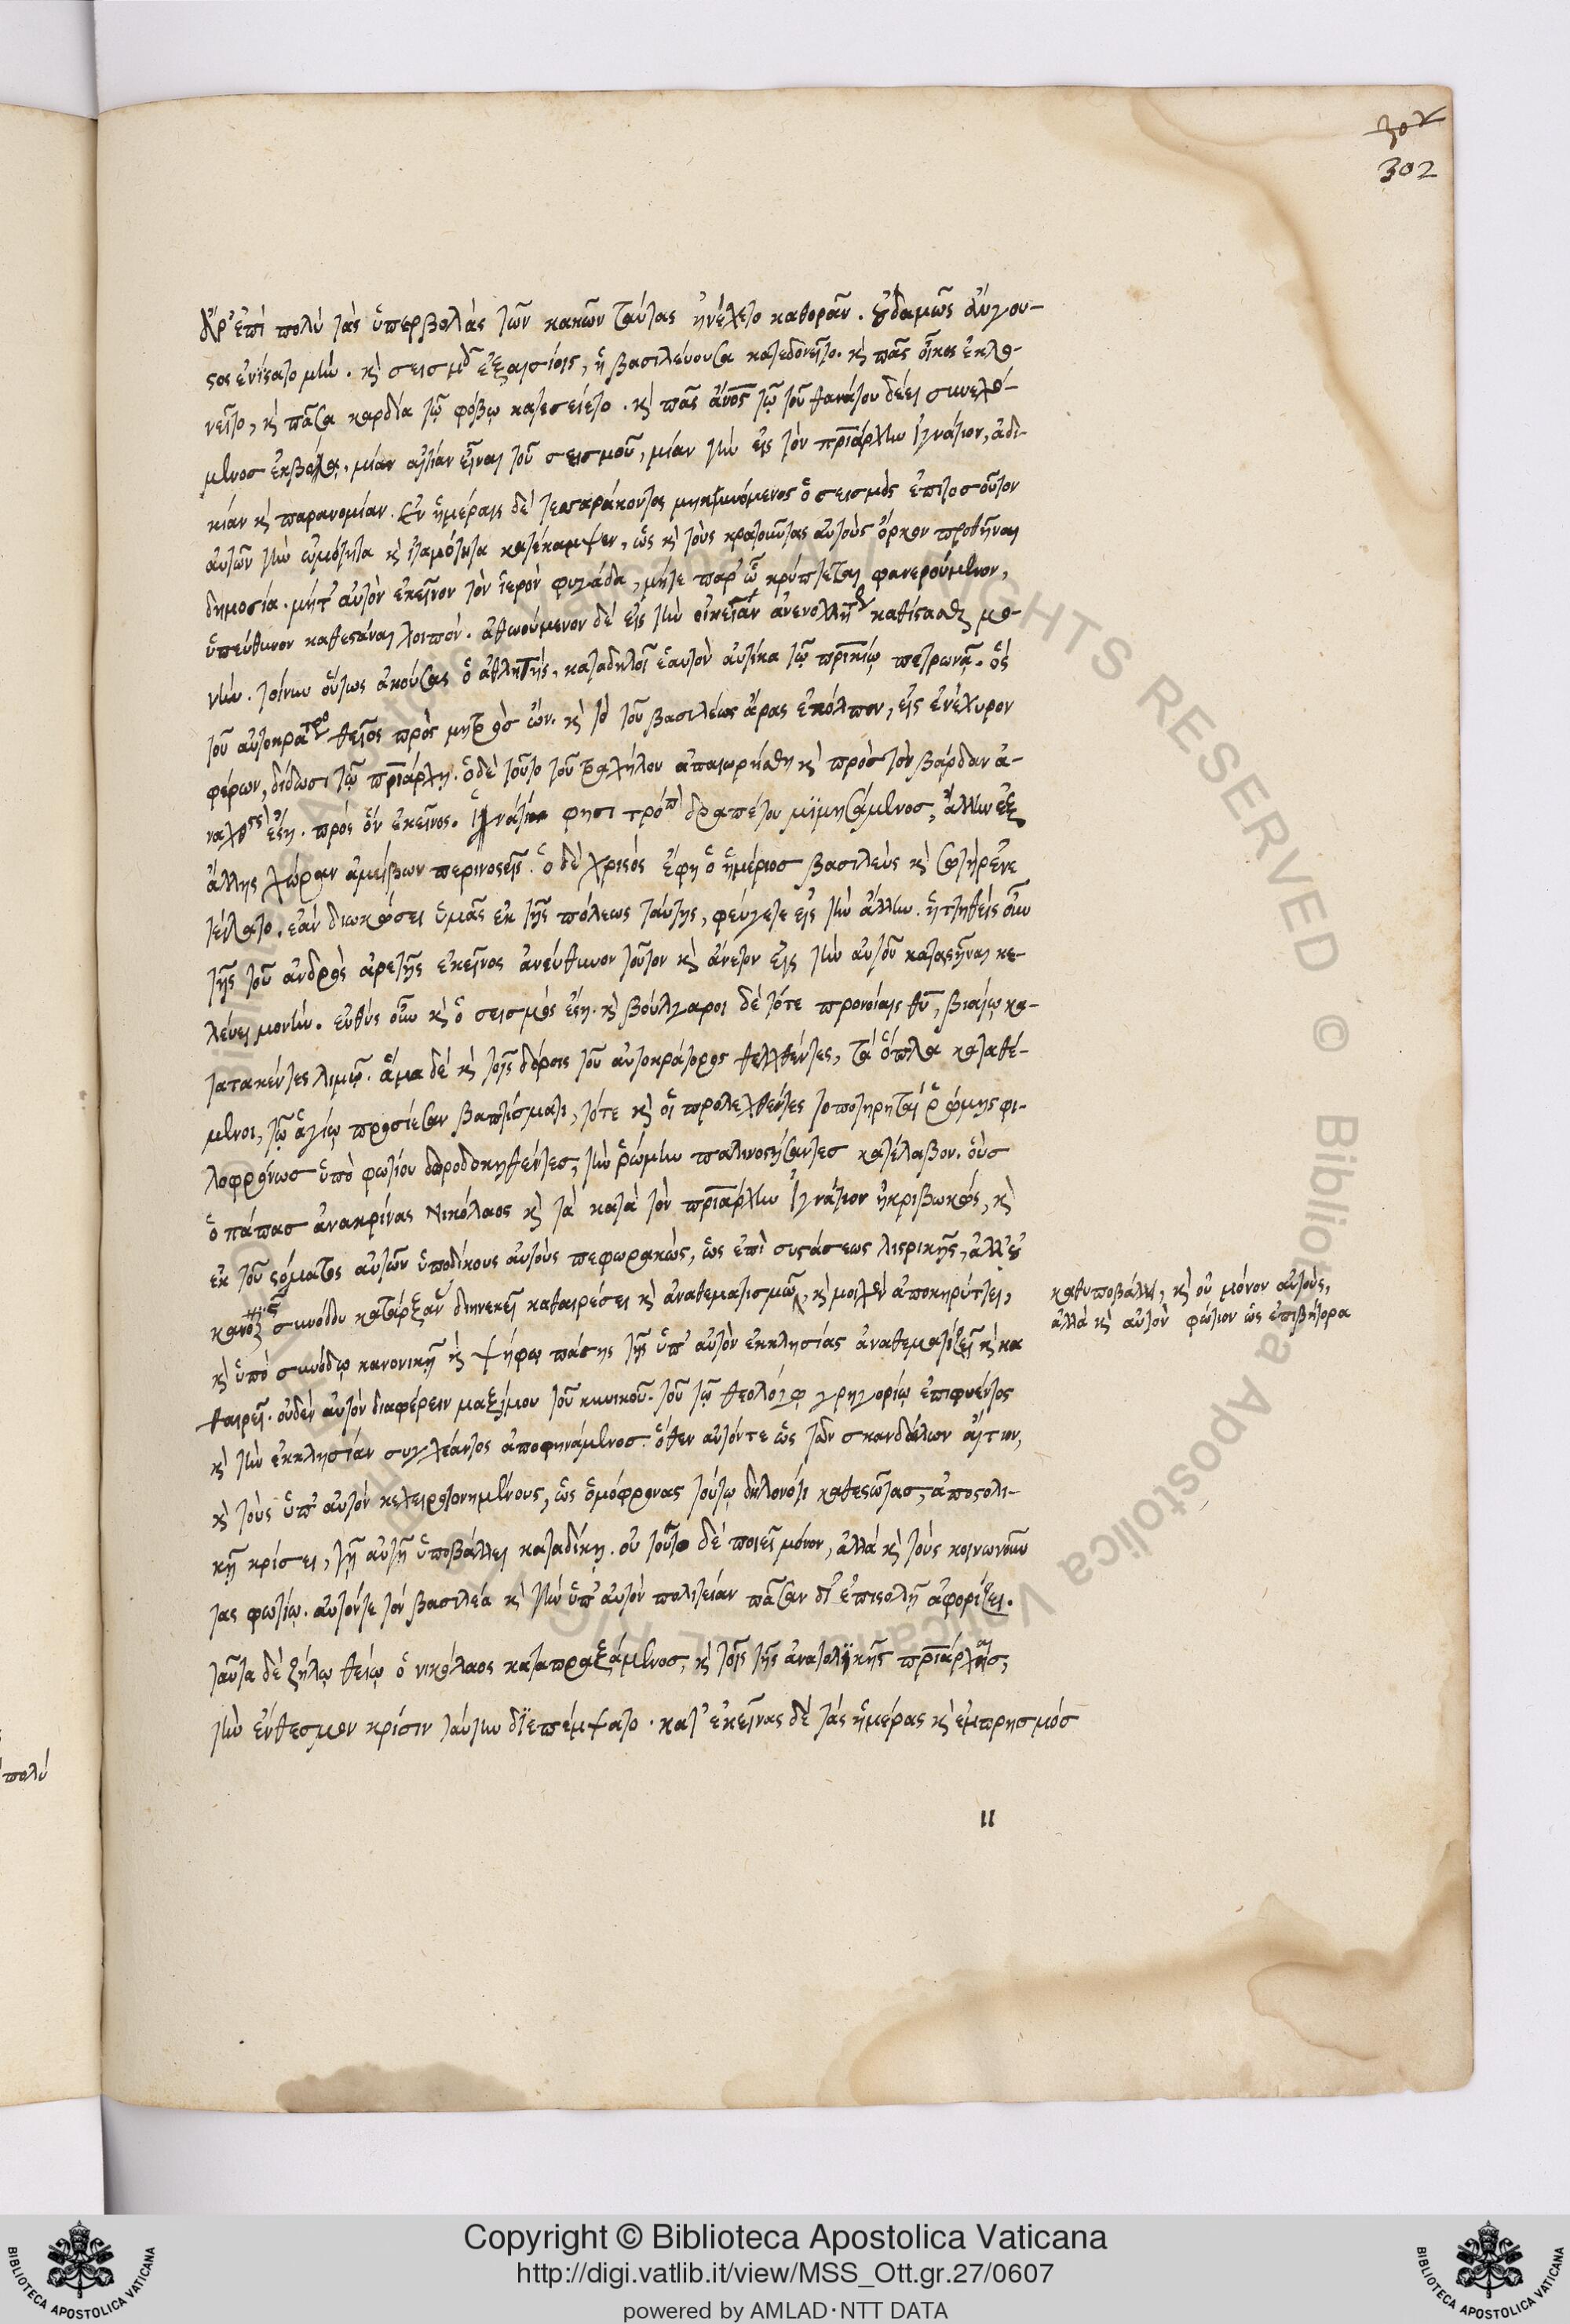 302
302
δίκη ἐπὶ πολὺ τὰς ὑπερβολὰς τῶν κακῶν ταύτας ἠνέχετο καθορᾶν. οὐδαμῶς αὔγου-
στος ἐνίστατο μὴν. καὶ σεισμοῖς ἐξαισίοις, ἡ βασιλεύουσα κατεδονεῖτο. καὶ πᾶς οἶκος ἐκλο-
νεῖτο, καὶ πᾶσα καρδία τῷ φόβῳ κατεσείετο. καὶ πᾶς ἄνος τῷ τοῦ θανάτου δέει συνελό-
μενος ἐκβοᾷ, μίαν αἰτίαν εἶναι τοῦ σεισμοῦ, μίαν τὴν εἰς τὸν πριάρχην ἰγνάτιον, ἀδι-
κίαν καὶ παρανομίαν. ἐν ἡμέραις δὲ τεσσαράκοντα μηκυνόμενος ὁ σεισμὸς ἐπὶ τοσοῦτον
αὐτῶν τὴν ὠμότητα καὶ ἰταμότητα κατέκαμψεν, ὡς καὶ τοὺς κρατοῦντας αὐτοὺς ὅρκον προθῆναι
δημοσία. μήτ' αὐτὸν ἐκεῖνον τὸν ἱερὸν φυγάδα, μήτε παρ' ᾧ κρύπτεται φανερούμενον,
ὑπεύθυνον καθεστάναι λοιπόν. ἀθωούμενον δὲ εἰς τὴν οἰκείαν ἀνενοχλήτως καθίστασθαι μο-
νήν. τοίνυν οὕτως ἀκούσας ὁ ἀθλητής, καταδηλοῖ ἑαυτὸν αὐτίκα τῷ πρικίῳ πετρωνᾷ. ὃς
τοῦ αὐτοκράτορος θεῖος πρὸς μητρὸς ὤν. καὶ τὸ τοῦ βασιλέως ἄρας ἐγκόλπιον, εἰς ἐνέχυρον
φέρων, δίδωσι τῷ πριάρχῃ. ὁ δὲ τοῦτο τοῦ τραχήλου ἀπαιωρήσθη καὶ πρὸς τὸν βάρδαν ἀ-
ναχθεὶς ἔστη. πρὸς ὃν ἐκεῖνος. ἰγνάτιε φησι τρόπον δραπέτου μιμησάμενος, ἄλλην ἐξ
ἄλλης χώραν ἀμείβων περινοστεῖς. ὁ δὲ χριστός ἔφη ὁ ἡμέτερος βασιλεὺς καὶ σωτὴρ ἐνε
τείλατο. ἐὰν διωκώσει ὑμᾶς ἐκ τῆς πόλεως ταύτης, φεύγετε εἰς τὴν ἄλλην. ἡττηθεὶς οὖν
τῆς τοῦ ἀνδρὸς ἀρετῆς ἐκεῖνος ἀνεύθυνον τοῦτον καὶ ἄνετον εἰς τὴν αὐτοῦ καταστῆναι κε-
λεύει μονήν. εὐθὺς οὖν καὶ ὁ σεισμὸς ἔστη. καὶ βούλγαροι δὲ τότε προνοίαις θυ, βιαίῳ κα-
τατακέντες λιμῷ. ἅμα δὲ καὶ τοῖς δόροις τοῦ αὐτοκράτορος θελχθέντες, τὰ ὅπλα καταθέ-
μενοι, τῷ ἁγίῳ προσίεσαν βαπτίσματι, τότε καὶ οἱ προλεχθέντες τοποτηρηταὶ ῥώμης φι-
λοφρόνως ὑπὸ φωτίου δωροδοκηθέντες, τὴν ῥώμην παλινοστήσαντες κατέλαβον. οὓς
ὁ πάπας ἀνακρίνας Νικόλαος καὶ τὰ κατὰ τὸν πριάρχην ἰγνάτιον ἠκριβωκώς, καὶ
ἐκ τοῦ στόματος αὐτῶν ὑποδίκους αὐτοὺς πεφωρακὼς, ὡς ἐπὶ συστάσεως λῃστρικῆς, ἀλλ' οὐ
κανονικῆς συνόδου κατάρξαν διηνεκεῖ καθαιρέσει καὶ ἀναθεματισμῷ, καὶ μοιχὸν ἀποκηρύττει,
καθυποβάλλει, καὶ οὐ μόνον αὐτοὺς,
ἀλλὰ καὶ αὐτὸν φώτιον ὡς ἐπιβήτορα
καὶ ὑπὸ συνόδῳ κανονικῇ καὶ ψήφῳ πάσης τῆς ὑπ' αὐτὸν ἐκκλησίας ἀναθεματίζει καὶ κα
θαιρεῖ. οὐδὲν αὐτὸν διαφέρειν μαξίμου τοῦ κυνικοῦ. τοῦ τῷ θεολόγῳ γρηγορίῳ ἐπιφυέντος
καὶ τὴν ἐκκλησίαν συγχέαντος ἀποφηνάμενος. ὅθεν αὐτόν τε ὡς τῶν σκανδάλων αἴτιον,
καὶ τοὺς ὑπ' αὐτὸν κεχειροτονημένους, ὡς ὁμόφρονας τούτῳ δηλονότι καθεστῶτας, ἀποστολι-
κῇ κρίσει, τῇ αὐτῇ ὑποβάλλει καταδίκῃ. οὐ τοῦτο δὲ ποιεῖ μόνον, ἀλλὰ καὶ τοὺς κοινωνοῦν
τας φωτίῳ. αὐτόν τε τὸν βασιλέα καὶ τὴν ὑπ' αὐτὸν πολιτείαν πᾶσαν δι' ἐπιστολῇ ἀφορίζει.
ταῦτα δὲ ζήλῳ θείῳ ὁ νικόλαος καταπραξάμενος, καὶ τοῖς τῆς ἀνατολικῆς πριάρχαις,
τὴν ἔνθεσμον κρίσιν ταύτην διεπέμψατο. κατ' ἐκείνας δὲ τὰς ἡμέρας καὶ ἐμπρησμός
πολύ
Copyright © Biblioteca Apostolica Vaticana
http://digi.vatlib.it/view/MSS_Ott.gr.27/0607
powered by AMLAD·NTT DATA